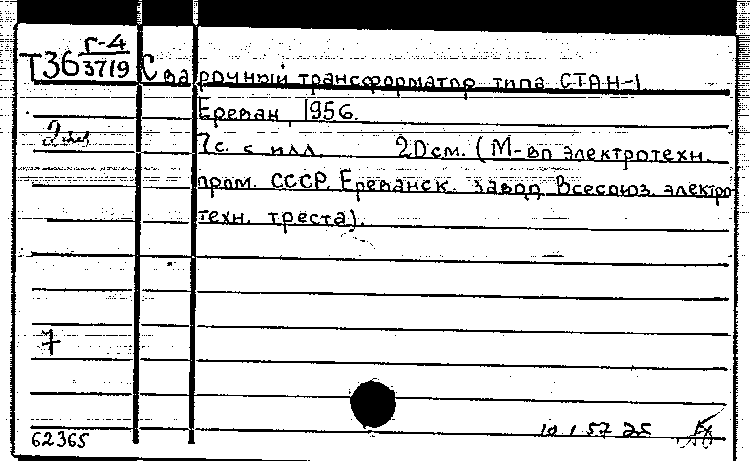 Г-4
Т36 3719 Сварочный трансформатор типа СТАН-1
Ереван, 1956.
7с. с илл. 20см. (М-во электротехн.
пром. СССР. Ереванск. завод Всесоюз. электро-
техн. треста).
7
62365
10 1 57 25